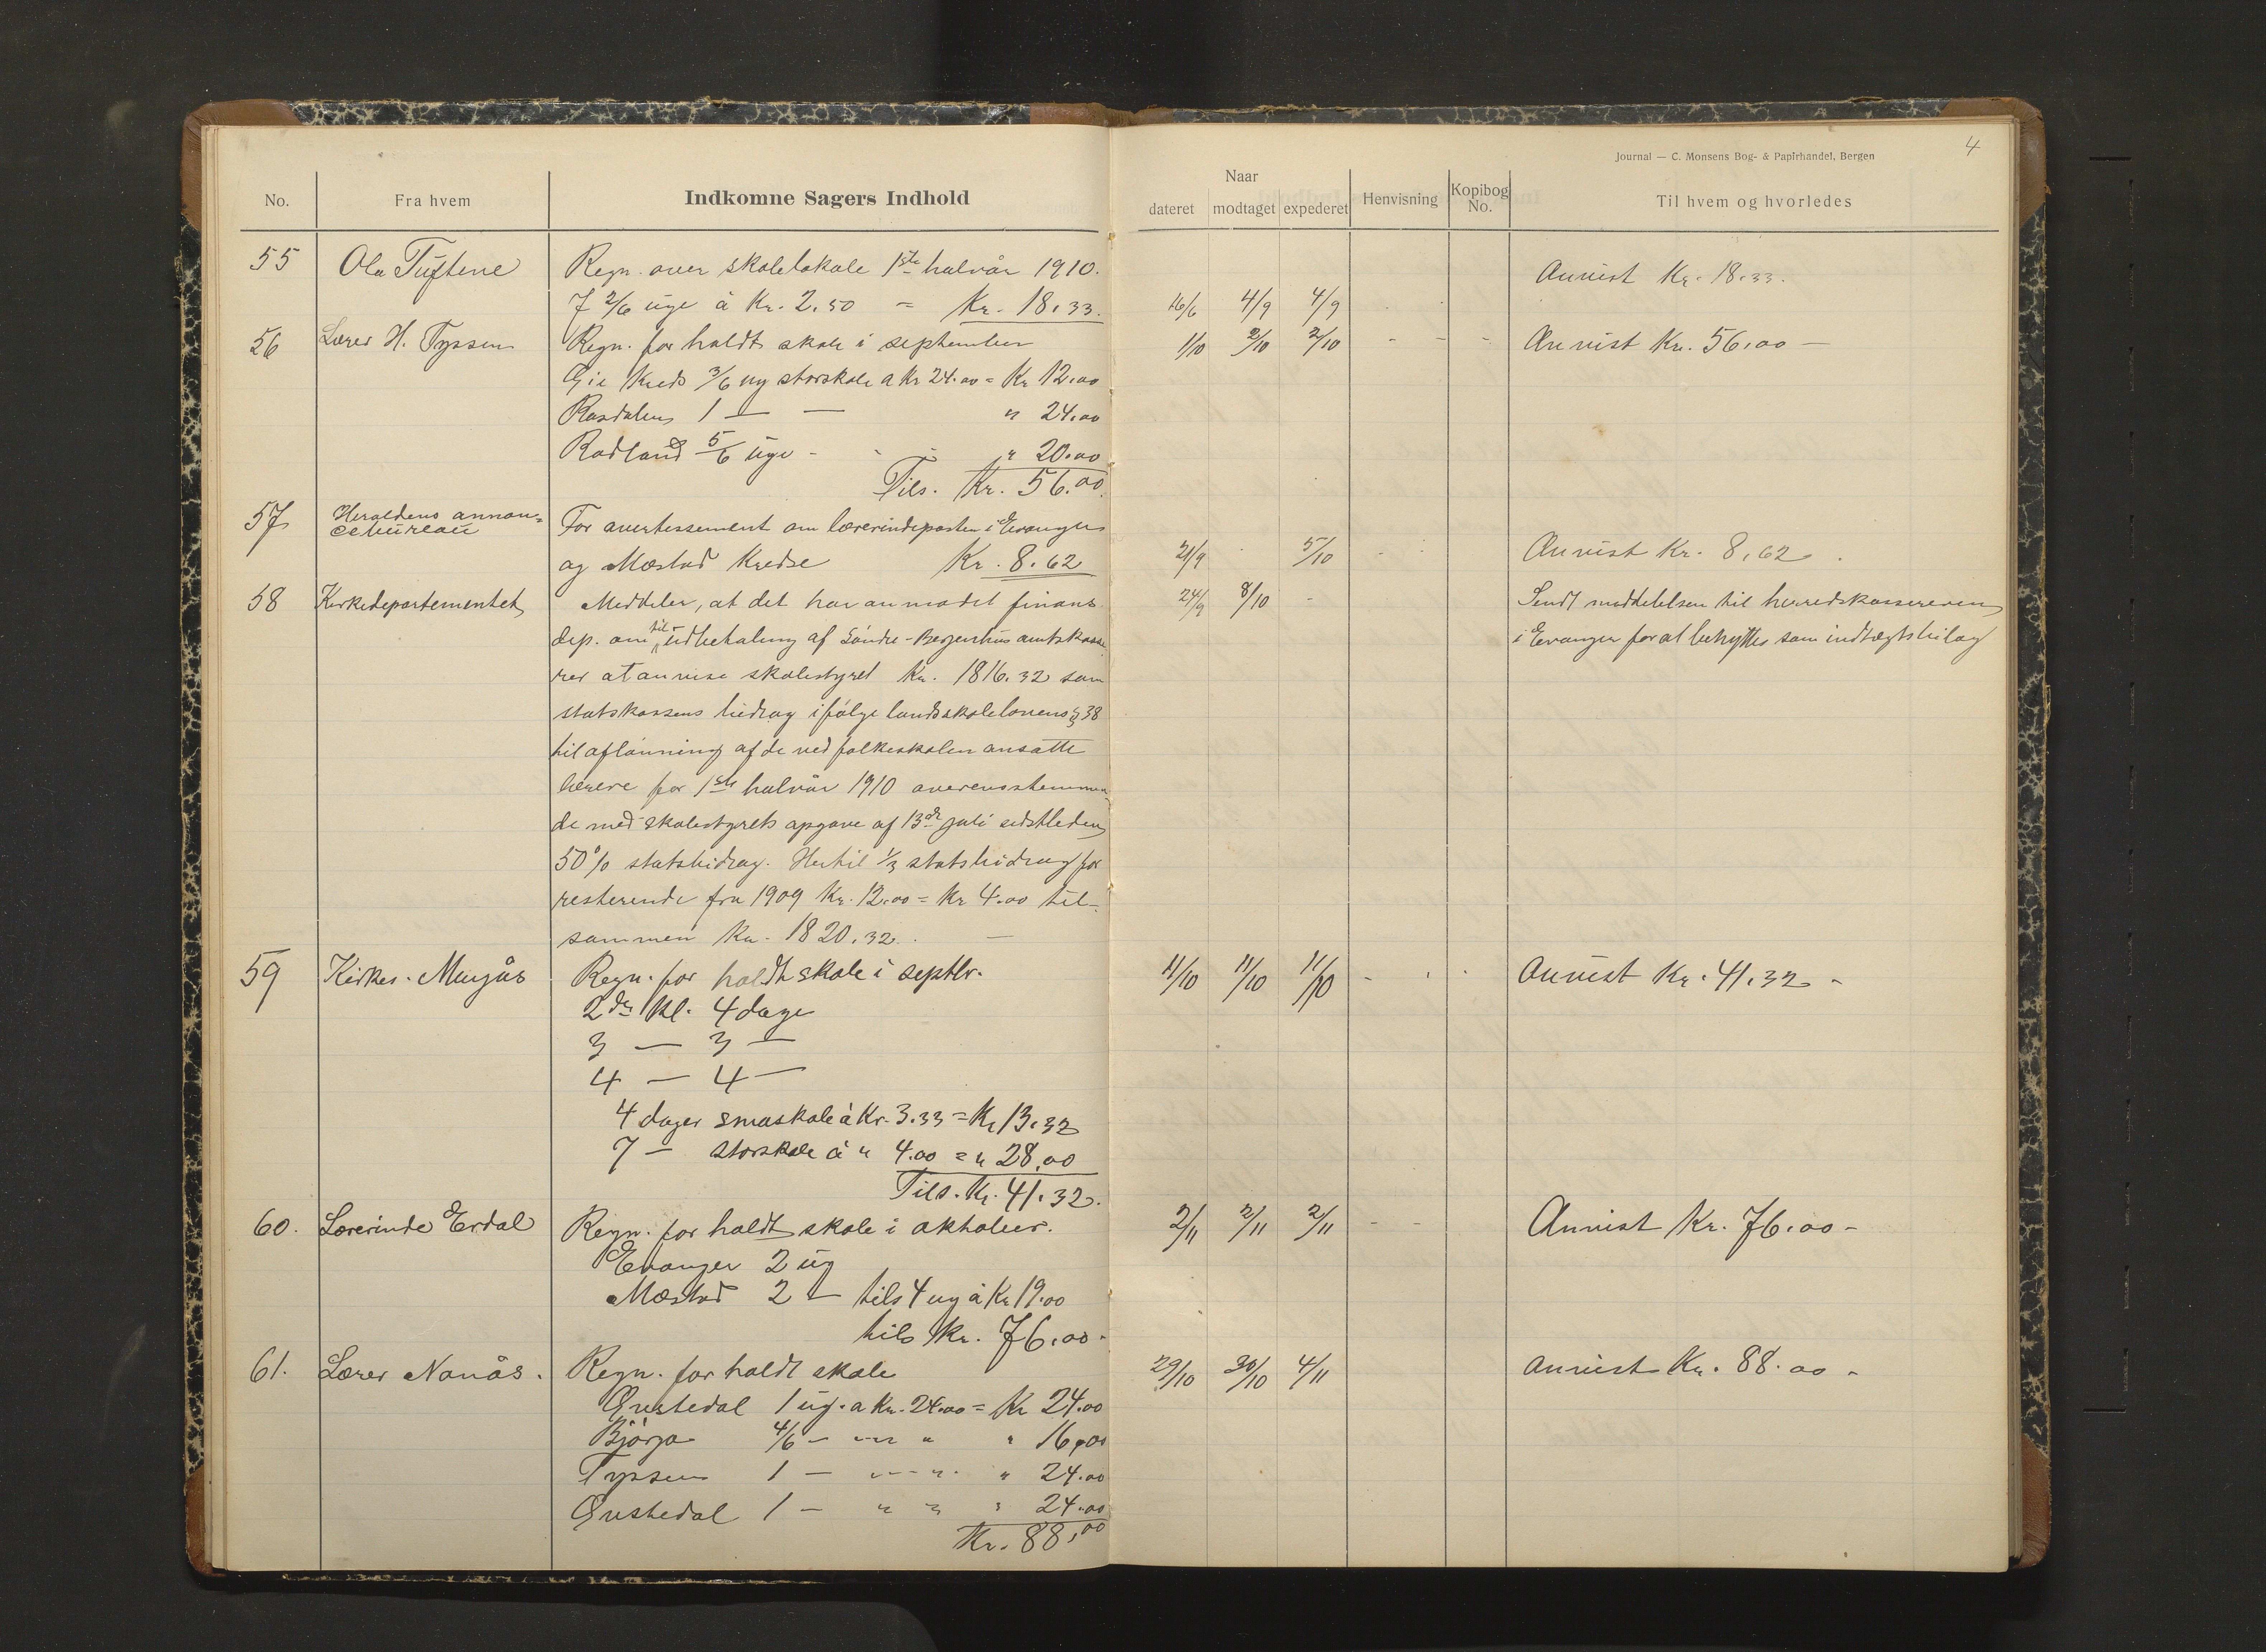 Journal — C. Monsens Bog- & Papirhandel, Bergen
4
No.
Fra hvem
Indkomne Sagers Indhold
Naar
dateret
modtaget
expederet
Henvisning
Kopibog No.
Til hvem og hvorledes
55 Ola Tuftene Regn. over skolelokale 1ste halvår 1910. Anvist Kr. 18.33.
7 2/6 uge à Kr. 2.50 = Kr. 18.33. 16/6 4/9 4/9
56 Lærer H. Tyssen Regn. for holdt skole i september 1/10 2/10 2/10 Anvist Kr. 56.00 —
Kreds 3/6 ug storskole a Kr 24.00 = Kr 12.00
Rasdalen 1 — — " 24.00
Rodland 5/6 uge - - - " 20.00
Tils. Kr. 56.00.
57 Heroldens annon=
cebureau For avertissement om lærerindeposten i Evanger
og Mæstad Kredse Kr. 8.62 21/9 5/10 Anvist Kr. 8.62.
58 Kirkedepartementet Meddeler, at det har anmodet finans 24/9 8/10 - Sendt meddelelsen til herredskassereren
dep. om til udbetaling af Söndre-Bergenhus amtskasse i Evanger for at benyttes som indtægtsbilag
rer at anvise skolestyret Kr. 1816.32 som
statskassens bidrag ifölge landsskolelovens § 38
til aflönning af de ved folkeskolen ansatte
lærere for 1ste halvår 1910 overensstemmen
de med skolestyrets opgave af 13de juli sidstleden
50% statsbidrag. Hertil 1/3 statsbidrag for
resterende fra 1909 Kr. 12.00 = Kr 4.00 til-
sammen Kr. 1820.32. —
59 Kirkes. Regn. for holdt skole i septbr. 11/10 11/10 11/10 Anvist Kr. 41.32 -
2den Kl. 4 dage
3 — 3 —
4 — 4 —
4 dager smaskole à Kr. 3.33 = Kr 13.32
7 — storskole à " 4.00 = " 28.00
Tils. Kr. 41.32.
60. Lærerinde Erdal Regn. for holdt skole i oktober. 2/11 2/11 2/11 - - Anvist Kr. 76.00 -
Evanger 2 ug
Mæstad 2 — tils 4 ug à Kr 19.00
tils Kr. 76.00 -
61. Lærer Nanås. Regn. for holdt skole 29/10 30/10 4/11 Anvist Kr. 88.00 -
1 ug. a Kr. 24.00 = Kr 24.00
Björgo 4/6 — " " " 16.00
Tyssen 1 — " " " 24.00
1 — " " " 24.00
Kr. 88.00